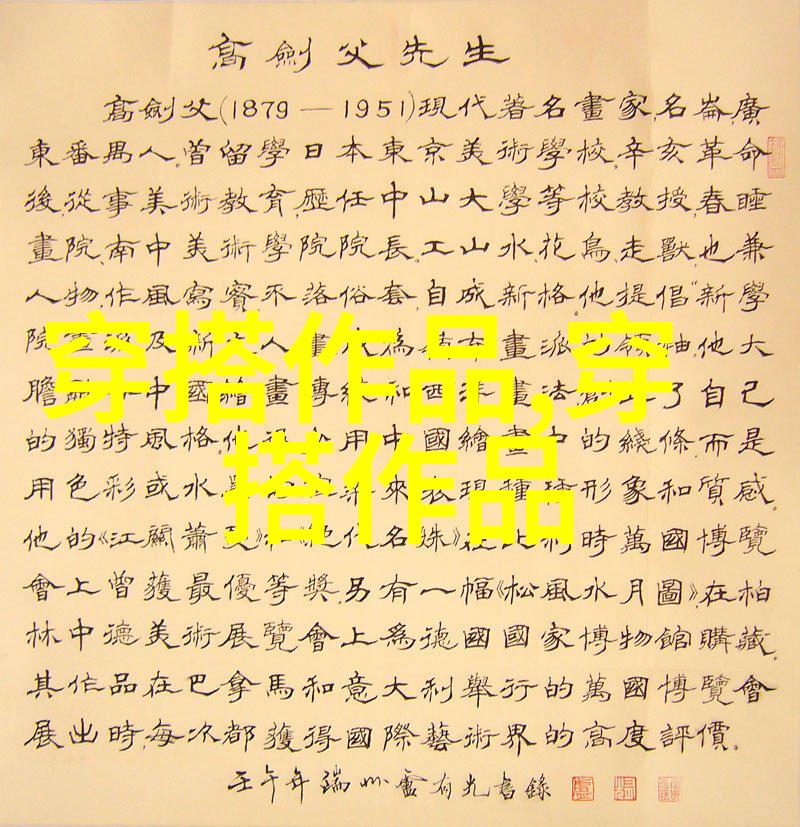 高劍父先生
高劍父(1879—1951)現代著名畫家,名崙,廣
東番禺人。曾留學日本東京美術學校。辛亥革命
後,從事美術教育,歷任中山大學等校教授,春睡
畫院、南中美術學院院長。工山水、花鳥、走獸,也兼
人物,作風寫實,不落俗套,自成新格。他提倡“新學
院派及新人畫為畫派領袖。他大
穿搭作品,穿
膽中國繪畫傳和西洋畫法了自己
的獨特風格。他用中國繪畫中的綫條,而是
搭作品
用色彩或水來表現種形象和質感。
他的《江關蕭代名姝》在比利時萬國博覽
會上曾獲最優等獎。另有一幅《松風水月圖》,在柏
林中德美術展覽會上爲德國國家博物館購藏。
其作品在巴拿馬和意大利舉行的萬國博覽會
展出時,每次都獲得國際藝術界的高度評價。
壬午年端州盧有光書錄